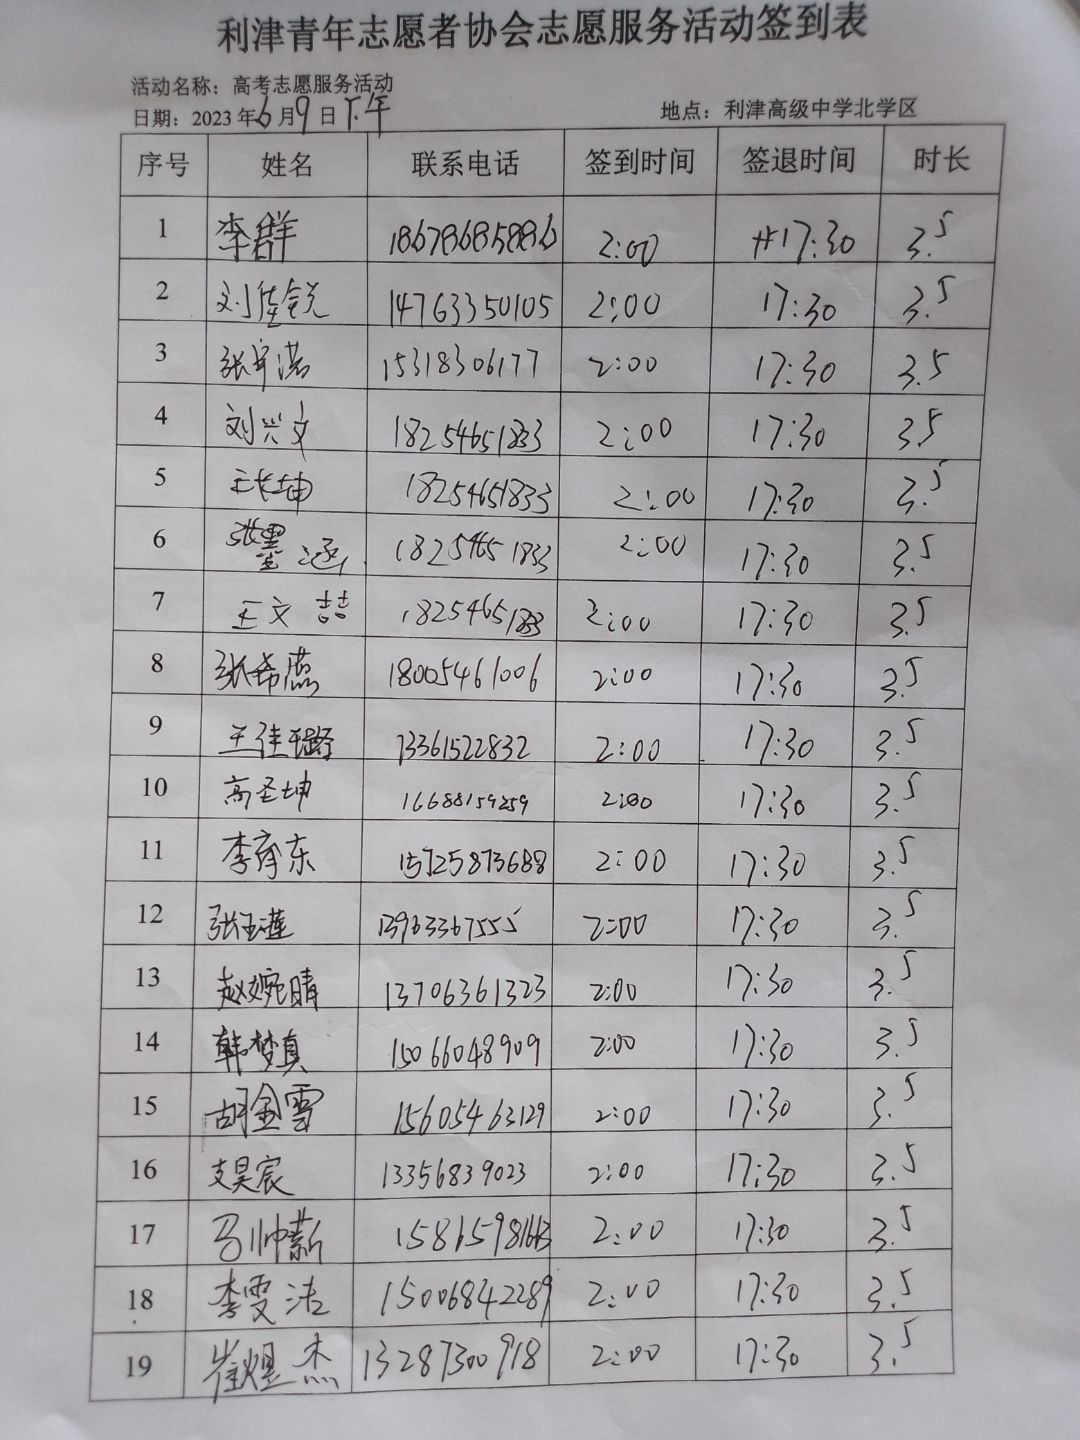 利津青年志愿者协会志愿服务活动签到表
活动名称：高考志愿服务活动
日期：2023年6月9日下午 地点：利津高级中学北学区
序号 姓名 联系电话 签到时间 签退时间 时长
1 李群 18678685886 2:00 17:30 3.5
2 刘佳锐 14763350105 2:00 17:30 3.5
3 张宇浩 15318306177 2:00 17:30 3.5
4 刘兴文 18254651833 2:00 17:30 3.5
5 王长坤 18254651833 2:00 17:30 3.5
6 张墨涵 18254651833 2:00 17:30 3.5
7 王文喆 18254651833 2:00 17:30 3.5
8 张希燕 18005461006 2:00 17:30 3.5
9 王佳璐 13361522832 2:00 17:30 3.5
10 高圣坤 16688159259 2:00 17:30 3.5
11 李存东 15725873688 2:00 17:30 3.5
12 张玉莲 13963367555 2:00 17:30 3.5
13 赵婉晴 13706361323 2:00 17:30 3.5
14 韩梦真 15066048909 2:00 17:30 3.5
15 胡金雪 15605463129 2:00 17:30 3.5
16 支昊宸 13356839023 2:00 17:30 3.5
17 马帅薪 2:00 17:30 3.5
18 李雯洁 15006842289 2:00 17:30 3.5
19 崔煜杰 13287300918 2:00 17:30 3.5